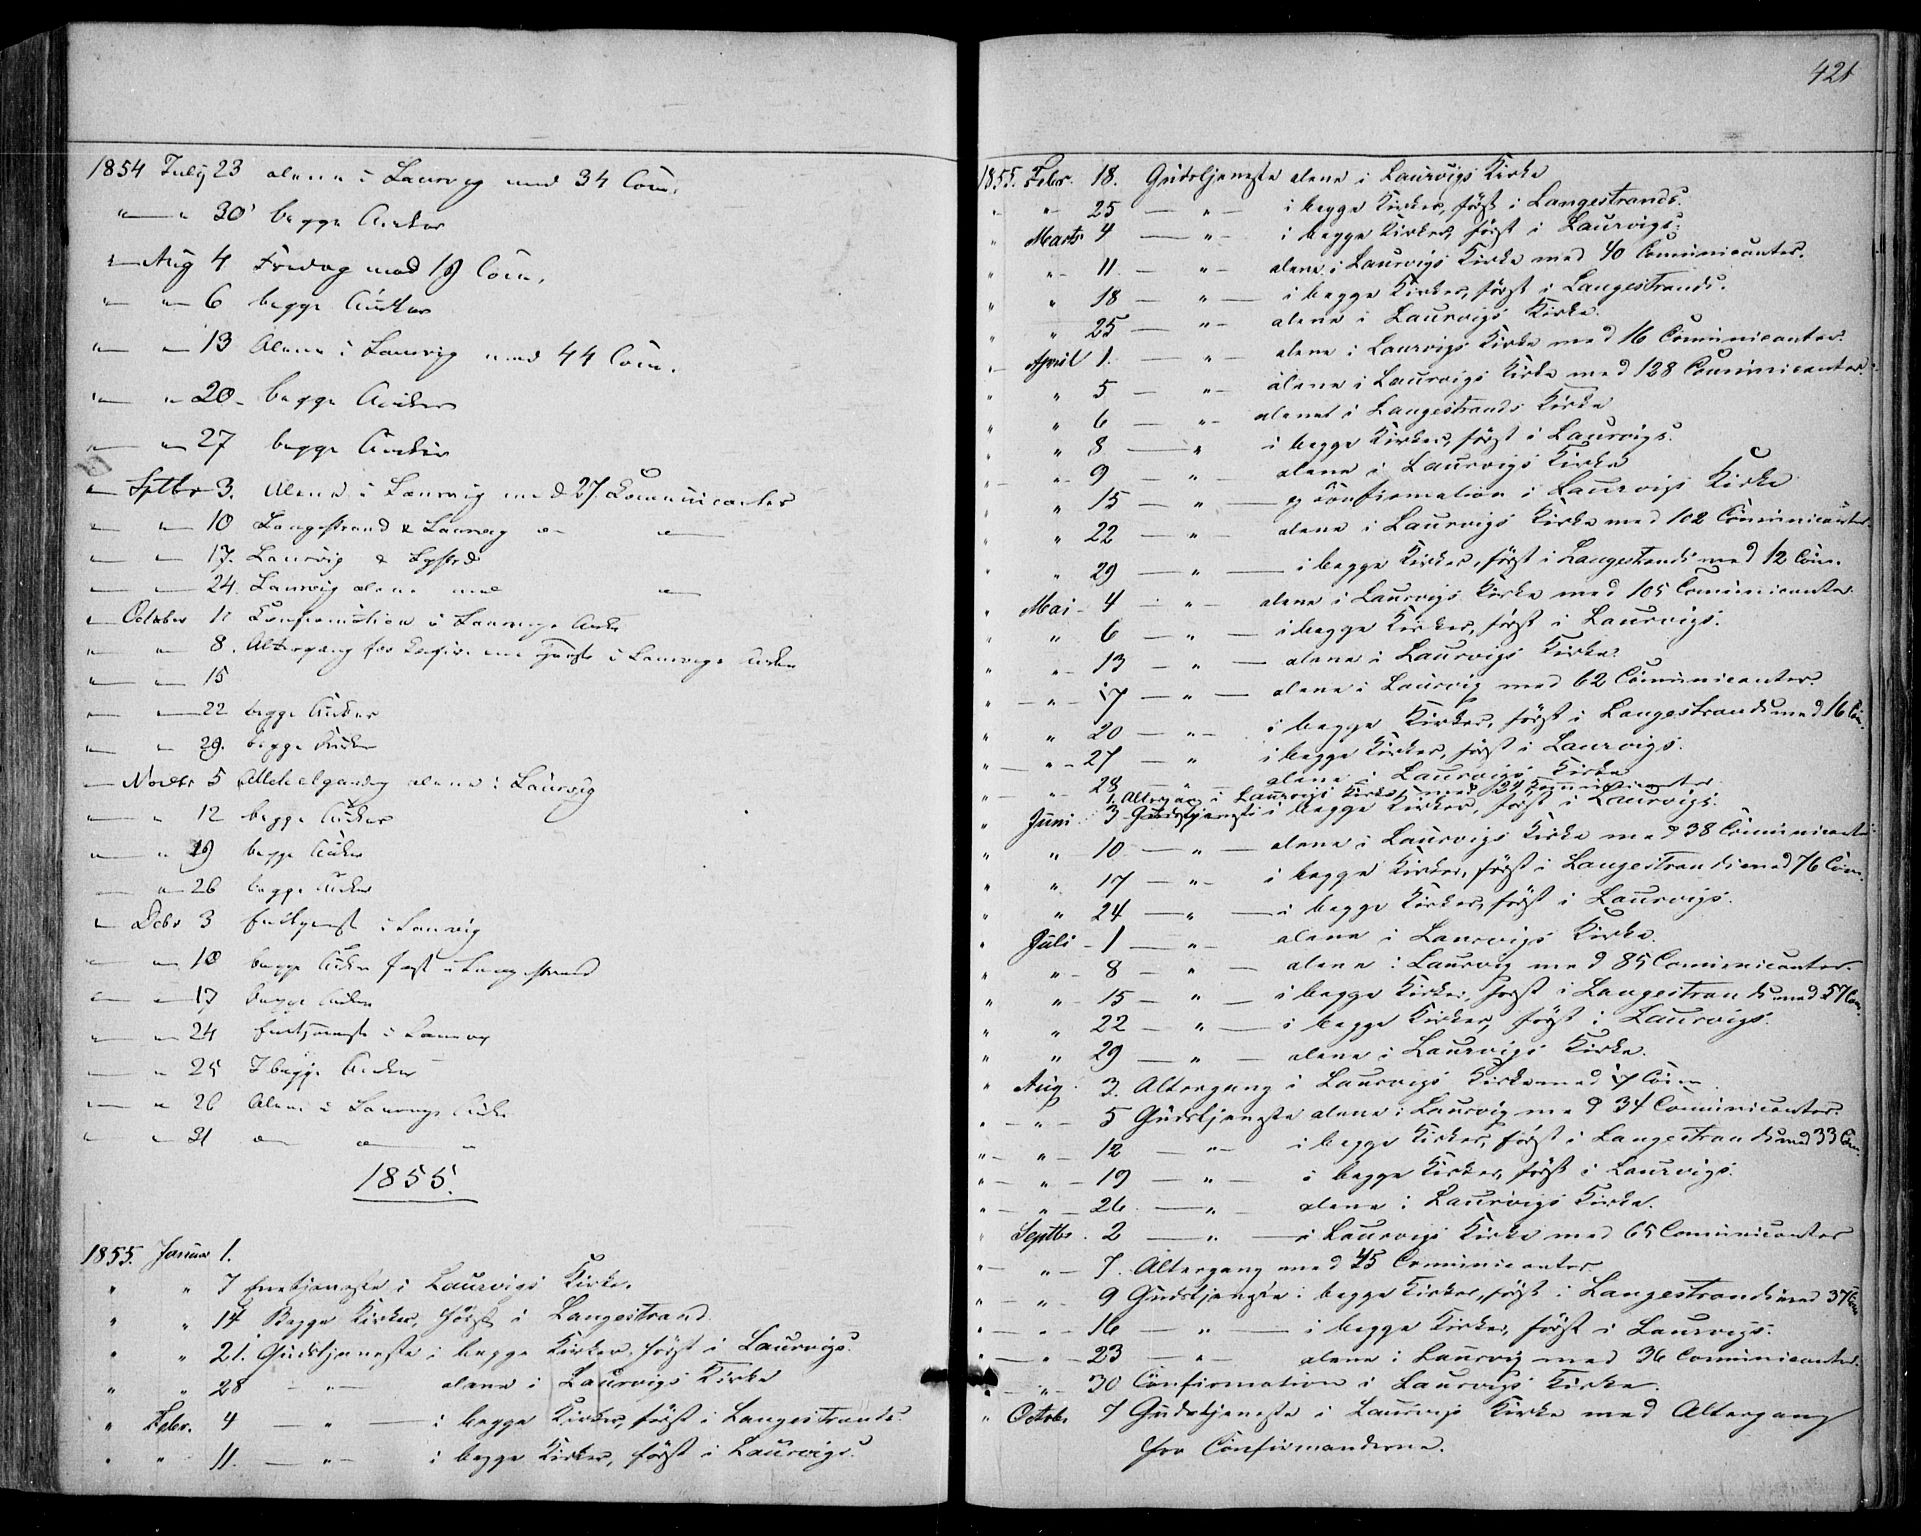 1854 July 23 alene i Laurvig med 34 Com.
" " 30 begge Kirker
" Aug 4 Fredag med 19 Com.
" " 6 begge Kirker
" " 13 Alene i Laurvig med 44 Com.
" " 20 begge Kirker
" " 27 begge Kirker
" Septbr 3. Alene i Laurvig med 27 Communicanter
" " 10 Langestrand & Laurvig
" " 17. Laurvig &
" " 24. Laurvig alene med
" October 1. Confirmation i Laurvigs Kirke
" " 8. Altergang for i Laurvigs Kirke
" " 15
" " 22 begge Kirker
" " 29. begge Kirker
" Novbr 5 Allehelgensdag alene i Laurvig
" " 12 begge Kirker
" " 19 begge Kirker
" " 26 begge Kirker
" Decbr 3 Enetjeneste i Laurvig
" " 10 begge Kirker først i Langestrand
" " 17 begge Kirker
" " 24 Enetjeneste i Laurvig
" " 25 I begge Kirker
" " 26 Alene i Laurvigs Kirke
" " 31 " " "
1855.
1855. Januar 1.
" " 7 Enetjeneste i Laurvigs Kirke.
" " 14 Begge Kirker, først i Langestrand.
" " 21. Gudstjeneste i begge Kirker, først i Laurvigs.
" " 28 — " — alene i Laurvigs Kirke
" Febr. 4 — " — i begge Kirker, først i Langestrands.
" " 11. — " — i begge Kirker, først i Laurvigs.
421
1855. Febr. 18. Gudstjeneste alene i Laurvigs Kirke
" " 25 — " — i begge Kirker, først i Langestrands.
" Marts 4 — " — i begge Kirker, først i Laurvigs.
" " 11 — " — alene i Laurvigs Kirke med 40 Communicanter.
" " 18 — " — i begge Kirker, først i Langestrands.
" " 25 — " — alene i Laurvigs Kirke.
" April 1. — " — alene i Laurvigs Kirke med 16 Communicanter.
" " 5 — " — alene i Laurvigs Kirke med 128 Communicanter.
" " 6 — " — alenet i Langestrands Kirke
" " 8 — " — i begge Kirker, først i Laurvigs.
" " 9 — " — alene i Laurvigs Kirke
" " 15 — " — og Confirmation i Laurvigs Kirke
" " 22 — " — alene i Laurvigs Kirke med 102 Communicanter.
" " 29 — " — i begge Kirker, først i Langestrands med 12 Com.
" Mai 4 — " — alene i Laurvigs Kirke med 105 Communicanter.
" " 6 — " — i begge Kirker, først i Laurvigs.
" " 13 — " — alene i Laurvigs Kirke.
" " 17 — " — alene i Laurvig med 62 Communicanter.
" " 20 — " — i begge Kirker, først i Langestrands med 16 Com.
" " 27 — " — i begge Kirker, først i Laurvigs.
" " 28 — " — alene i Laurvigs Kirke
1. Altergang i Laurvigs Kirke med 24 Communicanter.
" Juni 3 Gudstjeneste i begge Kirker, først i Laurvigs.
" " 10 — " — alene i Laurvigs Kirke med 38 Communicanter
" " 17 — " — i begge Kirker, først i Langestrands med 76 Com.
" " 24 — " — i begge Kirker, først i Laurvigs.
" Juli 1 — " — alene i Laurvigs Kirke.
" " 8 — " — alene i Laurvig med 85 Communicanter.
" " 15 — " — i begge Kirker, først i Langestrands med 57 Com.
" " 22 — " — i begge Kirker, først i Laurvigs.
" " 29 — " — alene i Laurvigs Kirke.
" Aug. 3. Altergang i Laurvigs Kirke med 17 Com.
" " 5 Gudstjeneste alene i Laurvig med 34 Communicanter.
" " 12 — " — i begge Kirker, først i Langestrands med 33 Com.
" " 19 — " — i begge Kirker, først i Laurvigs.
" " 26 — " — alene i Laurvigs Kirke.
" Septbr. 2 — " — i Laurvigs Kirke med 65 Communicanter
" " 7. Altergang med 45 Communicanter
" " 9 Gudstjeneste i begge Kirker, først i Langestrands med 37 Com
" " 16 — " — i begge Kirker, først i Laurvigs.
" " 23 — " — alene i Laurvig med 36 Communicanter.
" " 30 Confirmation i Laurvigs Kirke.
" Octobr 7 Gudstjeneste i Laurvigs Kirke med Altergang
for Confirmanderne.